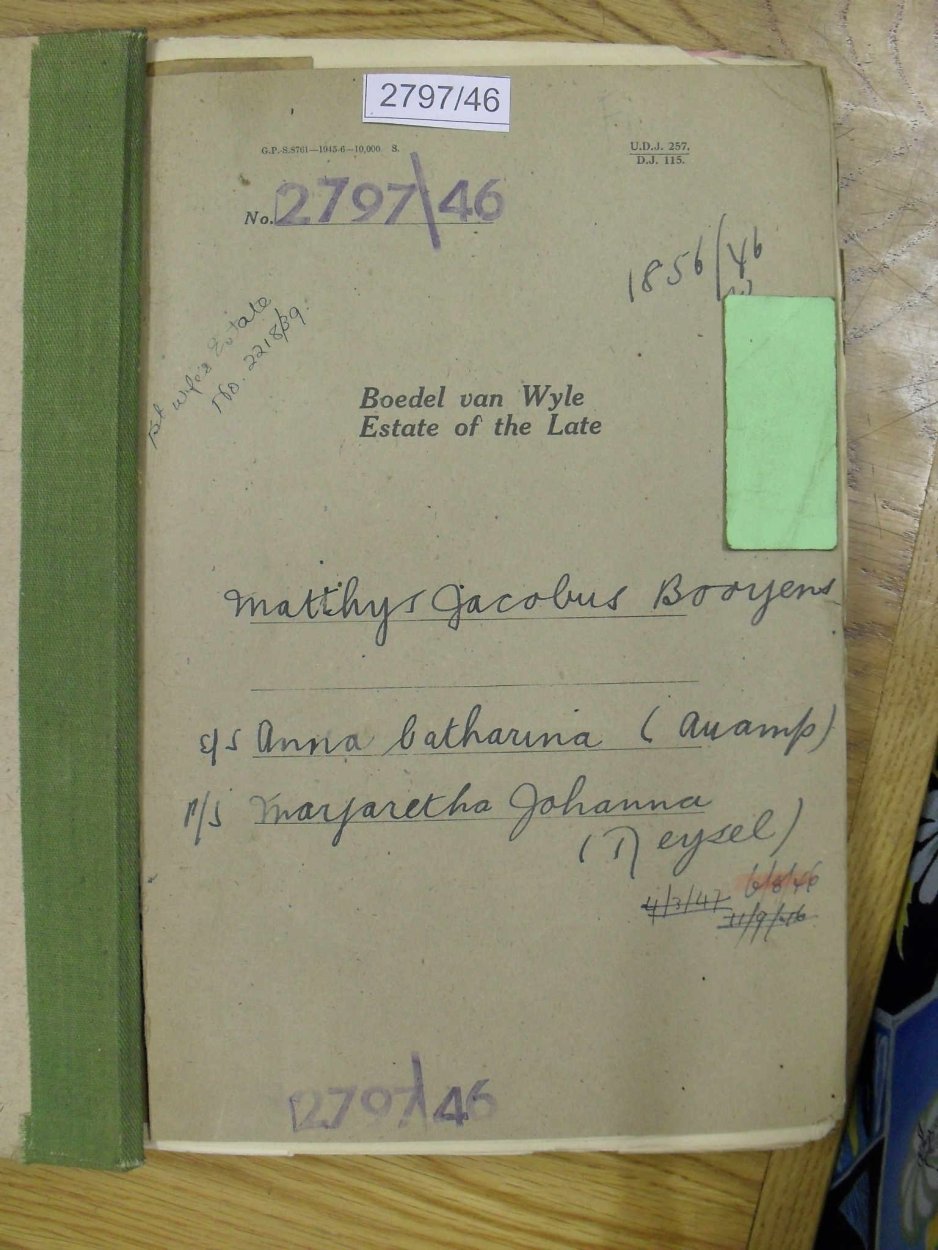 2797/46
G.P.-S.8761—1945-6—10,000 S.
U.D.J. 257.
D.J. 115.
No. 2797\46
1856/46
1st wife's Estate
No. 2218/39.
Boedel van Wyle
Estate of the Late
Matthys Jacobus Booyens
s/s Anna Catharina (Auamp)
p/s Margaretha Johanna
(Neysel)
4/3/47 6/8/46
11/9/46
2797\46